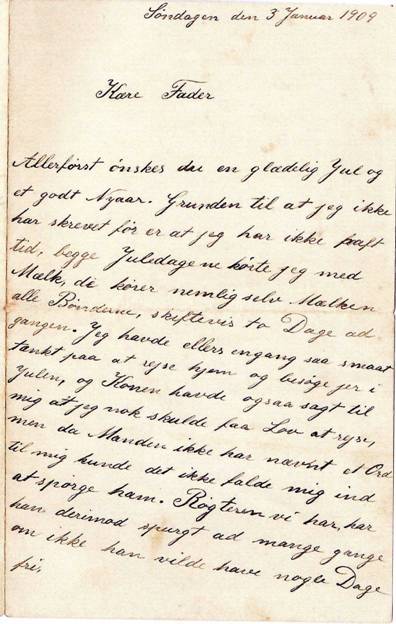 Søndagen den 3 Januar 1909
Kære Fader
Allerførst ønskes du en glædelig Jul og
et godt Nyaar. Grunden til at jeg ikke
har skrevet før er at jeg har ikke haft
tid, begge Juledagene kørte jeg med
Mælk, de kører nemlig selv Mælken
alle Bønderne, skiftevis to Dage ad
gangen. Jeg havde ellers engang saa smaat
tænkt paa at rejse hjem og besøge jer i
Julen, og Konen havde ogsaa sagt til
mig at jeg nok skulde faa Lov at rejse,
men da Manden ikke har nævnt et Ord
til mig kunde det ikke falde mig ind
at spørge ham. Røgteren vi har, har
han derimod spurgt ad mange gange
om ikke han vilde have nogle Dage
fri.